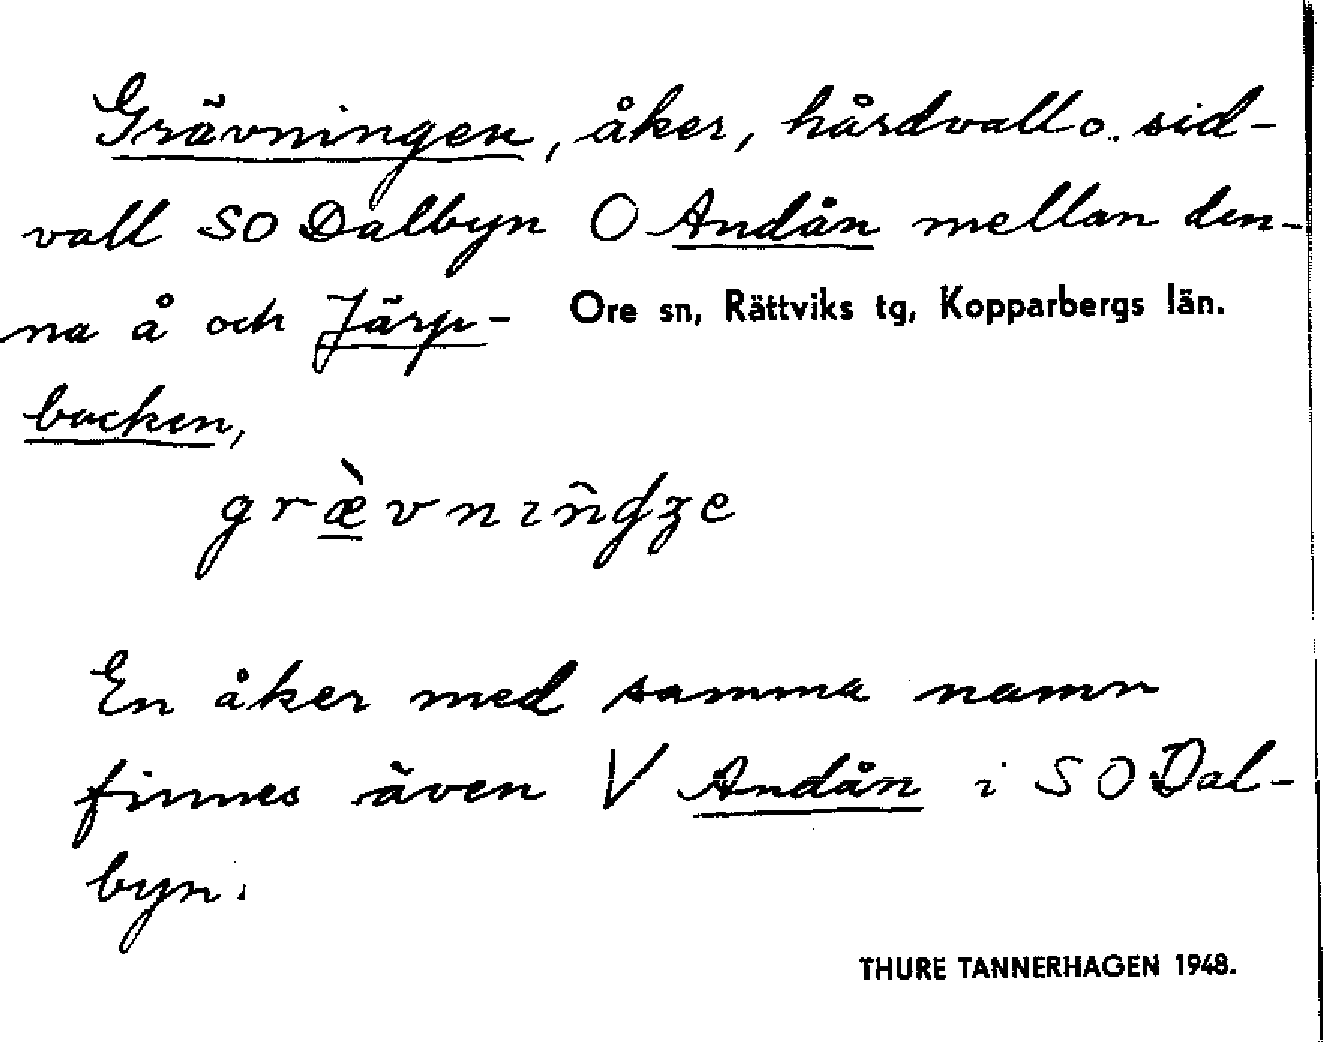 Grävningen, åker, hårdvall o. sid-
vall SO Dalbyn O Andån mellan den-
na å och Järp-
Ore sn, Rättviks tg, Kopparbergs län.
backen,
græ̀vnιn̂ʤe
En åker med samma namn
finnes även V Andån i SO Dal-
byn.
THURE TANNERHAGEN 1948.